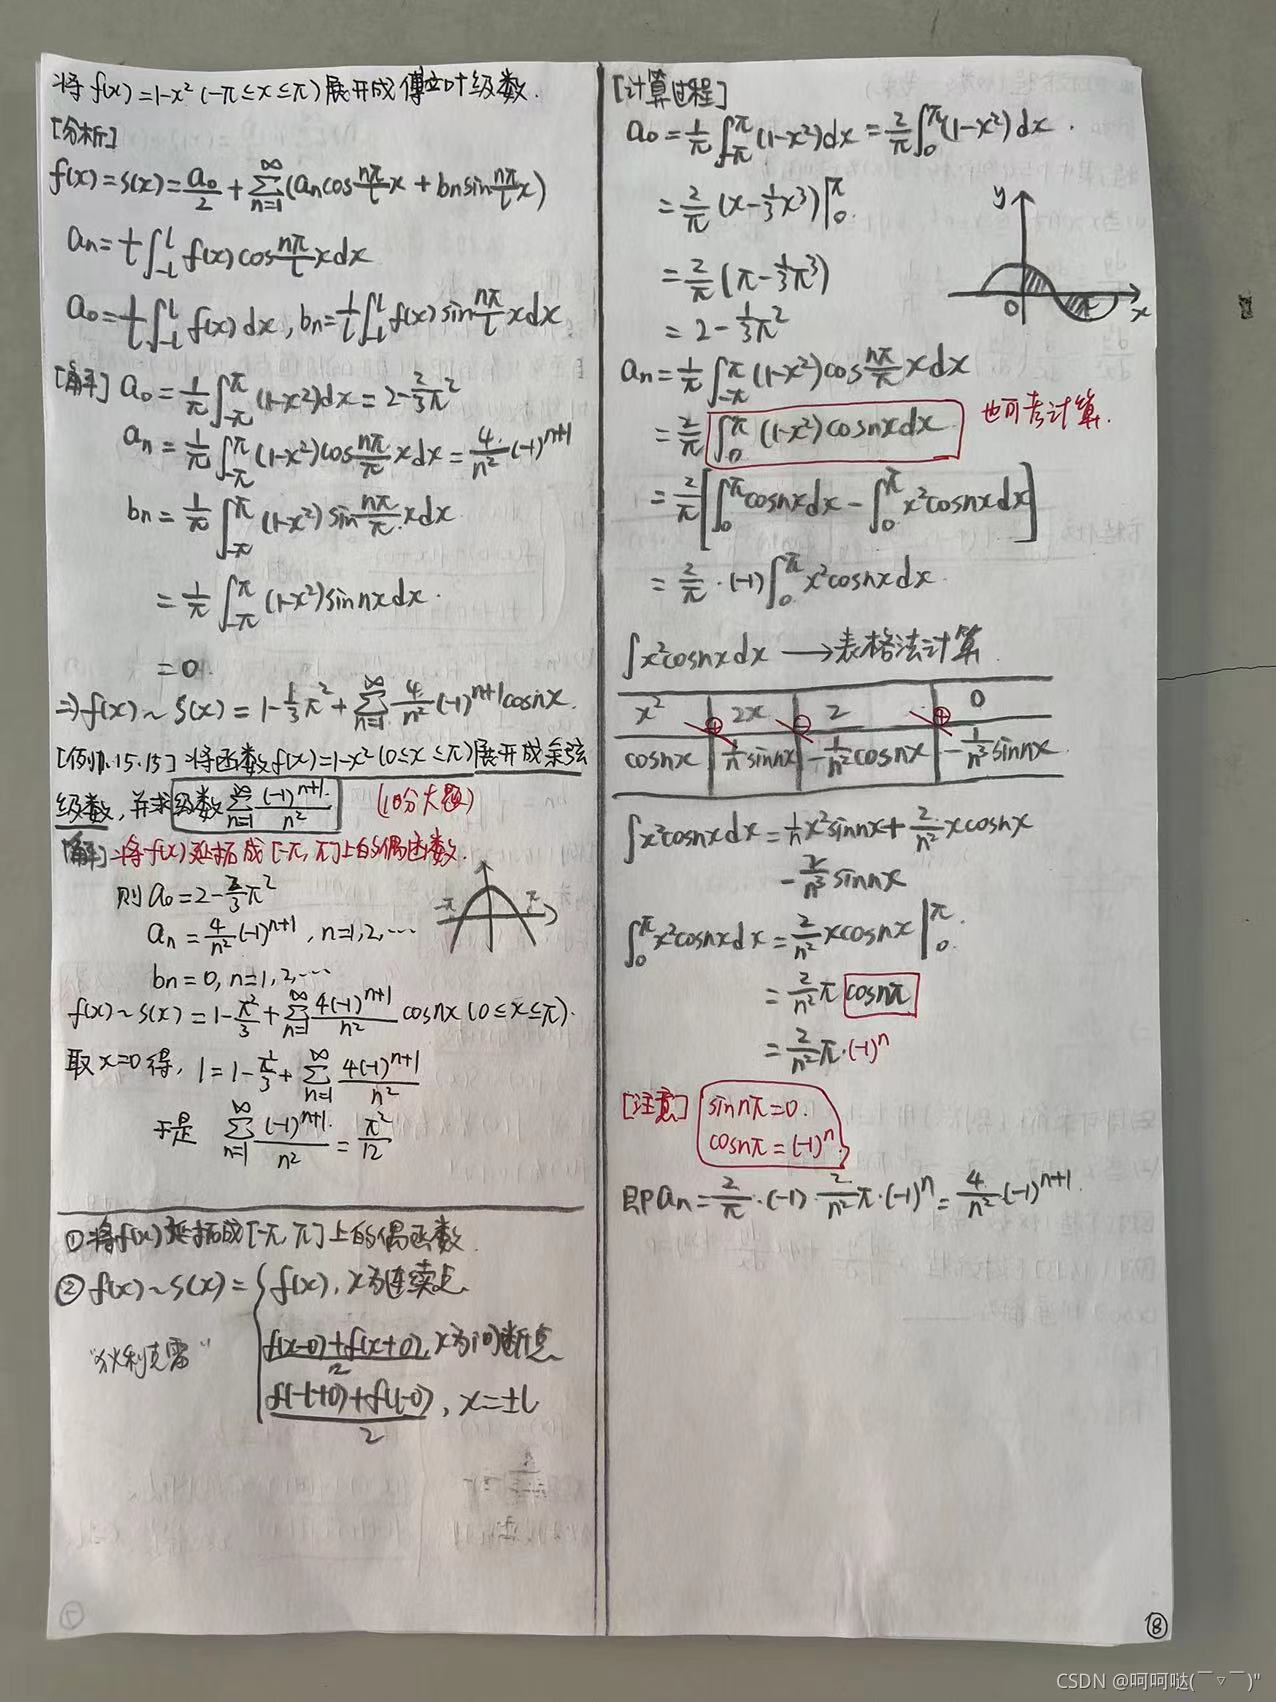 将f(x)=1-x²(-π≤x≤π)展开成傅立叶级数.
[分析]
f(x)=S(x)=a₀/2+∑_{n=1}^{∞}(aₙcos(nπ/l)x+bₙsin(nπ/l)x)
aₙ=1/l∫_{-l}^{l}f(x)cos(nπ/l)xdx
a₀=1/l∫_{-l}^{l}f(x)dx, bₙ=1/l∫_{-l}^{l}f(x)sin(nπ/l)xdx
[解] a₀=1/π∫_{-π}^{π}(1-x²)dx=2-2/3π²
aₙ=1/π∫_{-π}^{π}(1-x²)cos(nπ/π)xdx=4/n²(-1)^{n+1}
bₙ=1/π∫_{-π}^{π}(1-x²)sin(nπ/π)xdx
=1/π∫_{-π}^{π}(1-x²)sinnxdx.
=0.
⇒f(x)~S(x)=1-1/3π²+∑_{n=1}^{∞}4/n²(-1)^{n+1}cosnx.
15.15]将函数f(x)=1-x²(0≤x≤π)展开成余弦
级数,并求级数∑_{n=1}^{∞}(-1)^{n+1}/n² (10分大题)
[解]:将f(x)延拓成[-π,π]上的偶函数.
则a₀=2-2/3π²
aₙ=4/n²(-1)^{n+1},n=1,2,…
bₙ=0,n=1,2,…
-π π
f(x)~S(x)=1-π²/3+∑_{n=1}^{∞}4(-1)^{n+1}/n² cosnx(0≤x≤π).
取x=0得,1=1-π²/3+∑_{n=1}^{∞}4(-1)^{n+1}/n²
于是 ∑_{n=1}^{∞}(-1)^{n+1}/n²=π²/12
①将f(x)延拓成[-π,π]上的偶函数.
②f(x)~S(x)={f(x),x为连续点
(f(x-0)+f(x+0))/2,x为间断点
"狄利克雷"
(f(-l+0)+f(l-0))/2,x=±l
⑦
[计算过程]
a₀=1/π∫_{-π}^{π}(1-x²)dx=2/π∫_{0}^{π}(1-x²)dx.
=2/π(x-1/3x³)|_{0}^{π}
=2/π(π-1/3π³)
=2-1/3π²
y
0
x
aₙ=1/π∫_{-π}^{π}(1-x²)cos(nπ/π)xdx
=2/π∫_{0}^{π}(1-x²)cosnxdx 也可考计算.
=2/π[∫_{0}^{π}cosnxdx-∫_{0}^{π}x²cosnxdx]
=2/π·(-1)∫_{0}^{π}x²cosnxdx.
∫x²cosnxdx→表格法计算
x² ⊕ 2x ⊖ 2 ⊕ 0
cosnx 1/n sinnx -1/n²cosnx -1/n³sinnx
∫x²cosnxdx=1/n x²sinnx+2/n²xcosnx
-2/n³sinnx
∫_{0}^{π}x²cosnxdx=2/n²xcosnx|_{0}^{π}
=2/n²π cosnπ
=2/n²π·(-1)ⁿ
[注意] sinnπ=0.
cosnπ=(-1)ⁿ.
即aₙ=2/π·(-1)·2/n²π·(-1)ⁿ=4/n²(-1)^{n+1}.
⑧
CSDN @呵呵哒(￣▽￣)"